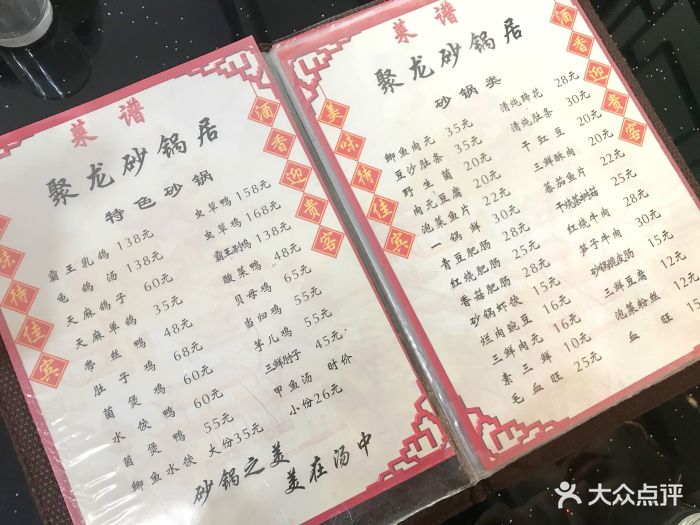 菜谱
聚龙砂锅居
特色砂锅
霸王乳鸽 138元 虫草鸭 158元
龟鸽汤 138元 虫草鸡 168元
天麻鸽子 60元 霸王别鸡 138元
天麻单鸽 35元 酸菜鸭 48元
带丝鸭 48元 贝母鸡 65元
肚子鸡 68元 当归鸡 55元
菌煲鸡 60元 芋儿鸡 55元
水饺鸭 60元 三鲜肘子 45元
菌煲鸭 55元 甲鱼汤 时价
鲫鱼水饺 大份35元 小份26元
砂锅之美
美在汤中
味待佳宾
酒香迎贵客
菜谱
聚龙砂锅居
砂锅类
鲫鱼肉元 35元 清炖蹄花 28元
豆沙肚条 35元 清炖肚条 30元
野生菌 20元 干豇豆 20元
肉元豆腐 20元 三鲜酥肉 20元
泡菜鱼片 22元 番茄鱼片 22元
一锅鲜 30元 干烧茶树菇 25元
青豆肥肠 28元 红烧牛肉 28元
红烧肥肠 25元 笋子牛肉 30元
香菇肥肠 28元 砂锅脆皮肠 15元
砂锅虾饺 15元 三鲜豆腐 12元
烂肉豌豆 16元 泡菜粉丝 12元
三鲜肉元 16元 血旺 15元
素三鲜 10元
毛血旺 25元
美味待佳宾
酒香迎贵客
大众点评